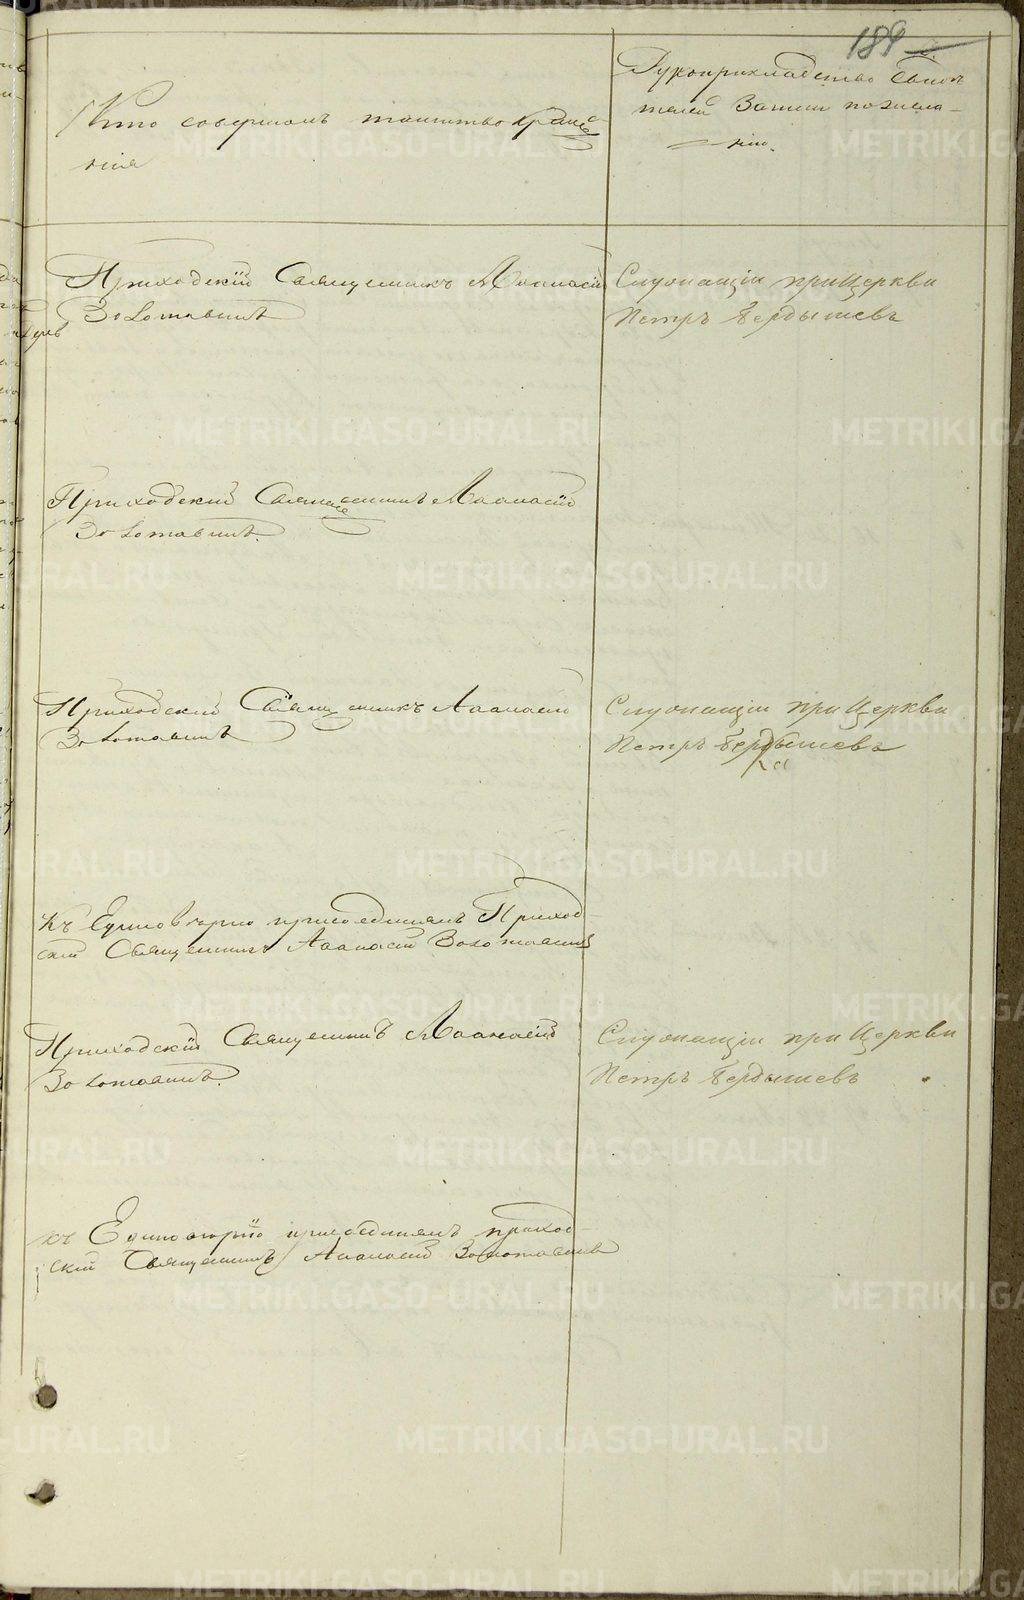 189
Кто совершалъ таинство креще-
нія
Рукоприкладство свидѣ-
телей записи по жела-
нію.
Приходскій Священникъ Аѳанасій
Золотавинъ
Служащій при Церкви
Петръ Бердышевъ
Приходскій Священникъ Аѳанасій
Золотавинъ.
Приходскій Священникъ Аѳанасій
Золотавинъ
Служащій при Церкви
Петръ Бердышевъ
Къ Единовѣрію присоединялъ Приход-
скій Священникъ Аѳанасій Золотавинъ
Приходскій Священникъ Аѳанасій
Золотавинъ.
Служащій при Церкви
Петръ Бердышевъ
къ Единовѣрію присоединялъ приход-
скій Священникъ Аѳанасій Золотавинъ
METRIKI.GASO-URAL.RU